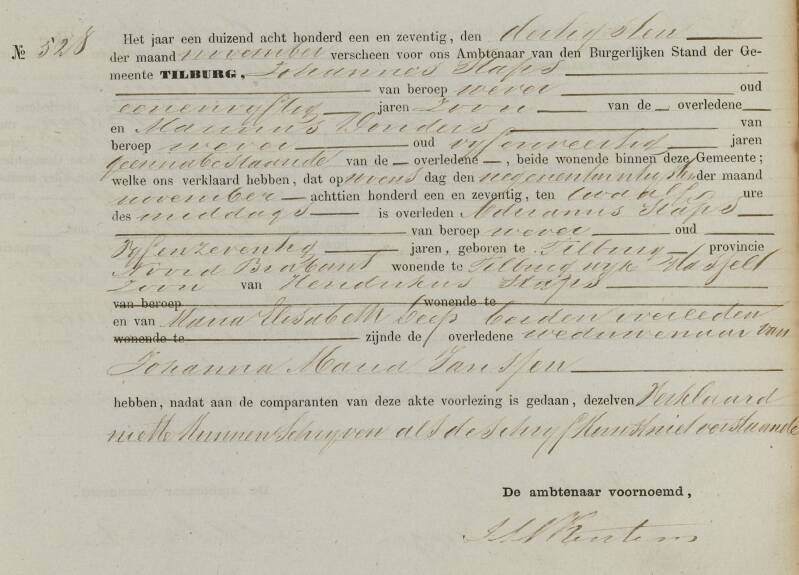 № 528 Het jaar een duizend acht honderd een en zeventig, den dertigsten
der maand november verscheen voor ons Ambtenaar van den Burgerlijken Stand der Ge-
meente TILBURG, Johannes Staps
van beroep wever oud
eenenvyftig jaren Zoon van de overledene
en Marinus Donders van
beroep wever oud vyfenveertig jaren
geen nabestaande van de overledene, beide wonende binnen deze Gemeente;
welke ons verklaard hebben, dat op dag den negenentwintigsten der maand
november achttien honderd een en zeventig, ten twaalf ure
des middags is overleden Adrianus Staps
van beroep wever oud
Vyfenzeventig jaren, geboren te Tilburg provincie
Noord Brabant wonende te Tilburg wyk Hasselt
Zoon van Hendrikus Staps
van beroep wonende te
en van Maria Elisabeth beiden overleden
wonende te zijnde de overledene weduwenaar van
Johanna Maria Janssen
hebben, nadat aan de comparanten van deze akte voorlezing is gedaan, dezelven Verklaard
niet te kunnen schryven als de schryfkunst niet verstaande
De ambtenaar voornoemd,